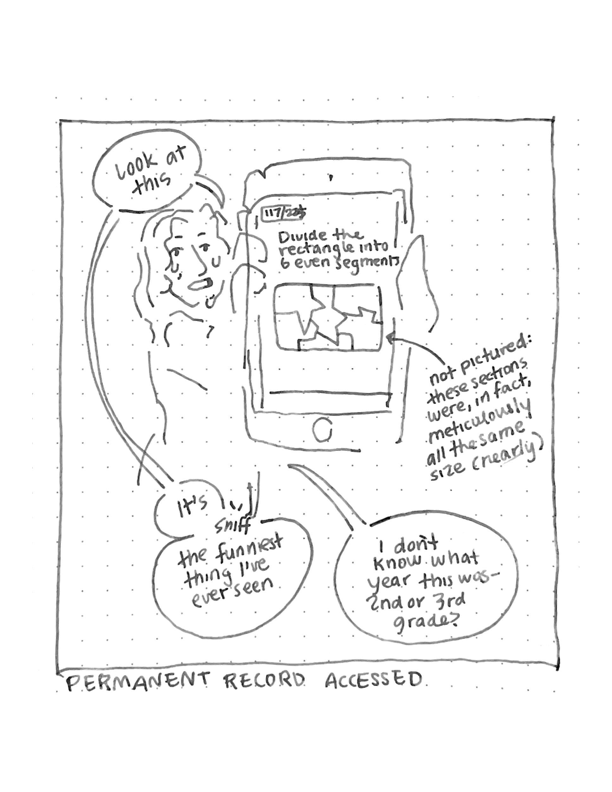 Look at
this
117/225
Divide the
rectangle into
6 even segments
not pictured:
these sections
were, in fact,
meticulously
all the same
size (nearly)
It's
sniff
the funniest
thing I've
ever seen
I don't
know what
year this was—
2nd or 3rd
grade?
PERMANENT RECORD ACCESSED.